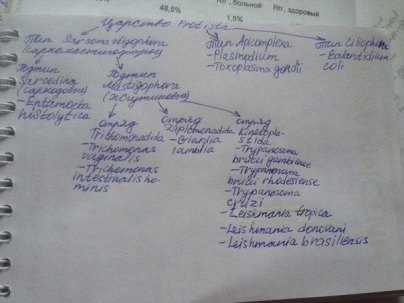 48,5%
ЯГ, больной
ЯГ, здоровый
1,5%
Царство Protista
Тип Sarcomastigophora
(Саркомастигофора)
Подтип
Sarcodina
(саркодовые)
- Entamoeba
histolytica
Подтип
Mastigophora
(жгутиковые)
отряд
Trichomonadida
- Trichomonas
vaginalis
- Trichomonas
intestinalis ho-
minis
отряд
Diplomonadida
- Giardia
lamblia
отряд
Kinetopla-
stida
- Trypanosoma
brucei gambiense
- Trypanosoma
brucei rhodesiense
- Trypanosoma
cruzi
- Leishmania tropica
- Leishmania donovani
- Leishmania brasiliensis
Тип Apicomplexa
- Plasmodium
- Toxoplasma gondii
Тип Ciliophora
- Balantidium
coli